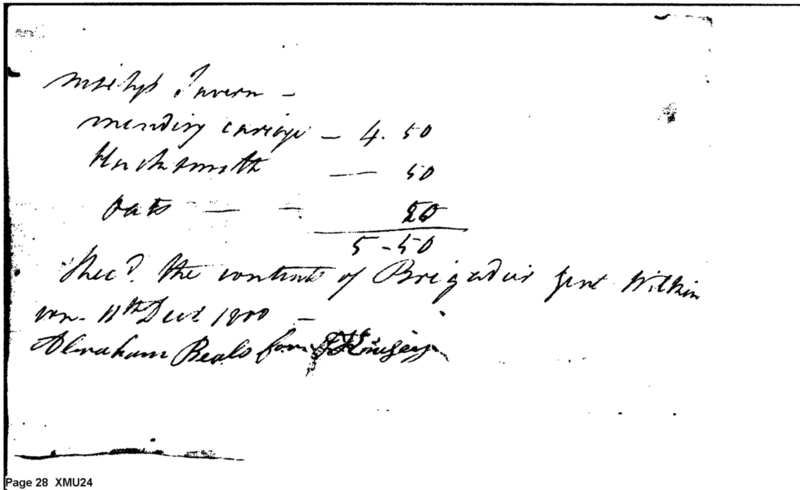 Tavern -
mending cariage - 4.50
Blacksmith — 50
Oats — - 50
5-50
Recd. the contents of Brigadier Genl Wilkin
son - 11th Decr 1800 -
Abraham Beals for
Page 28 XMU24